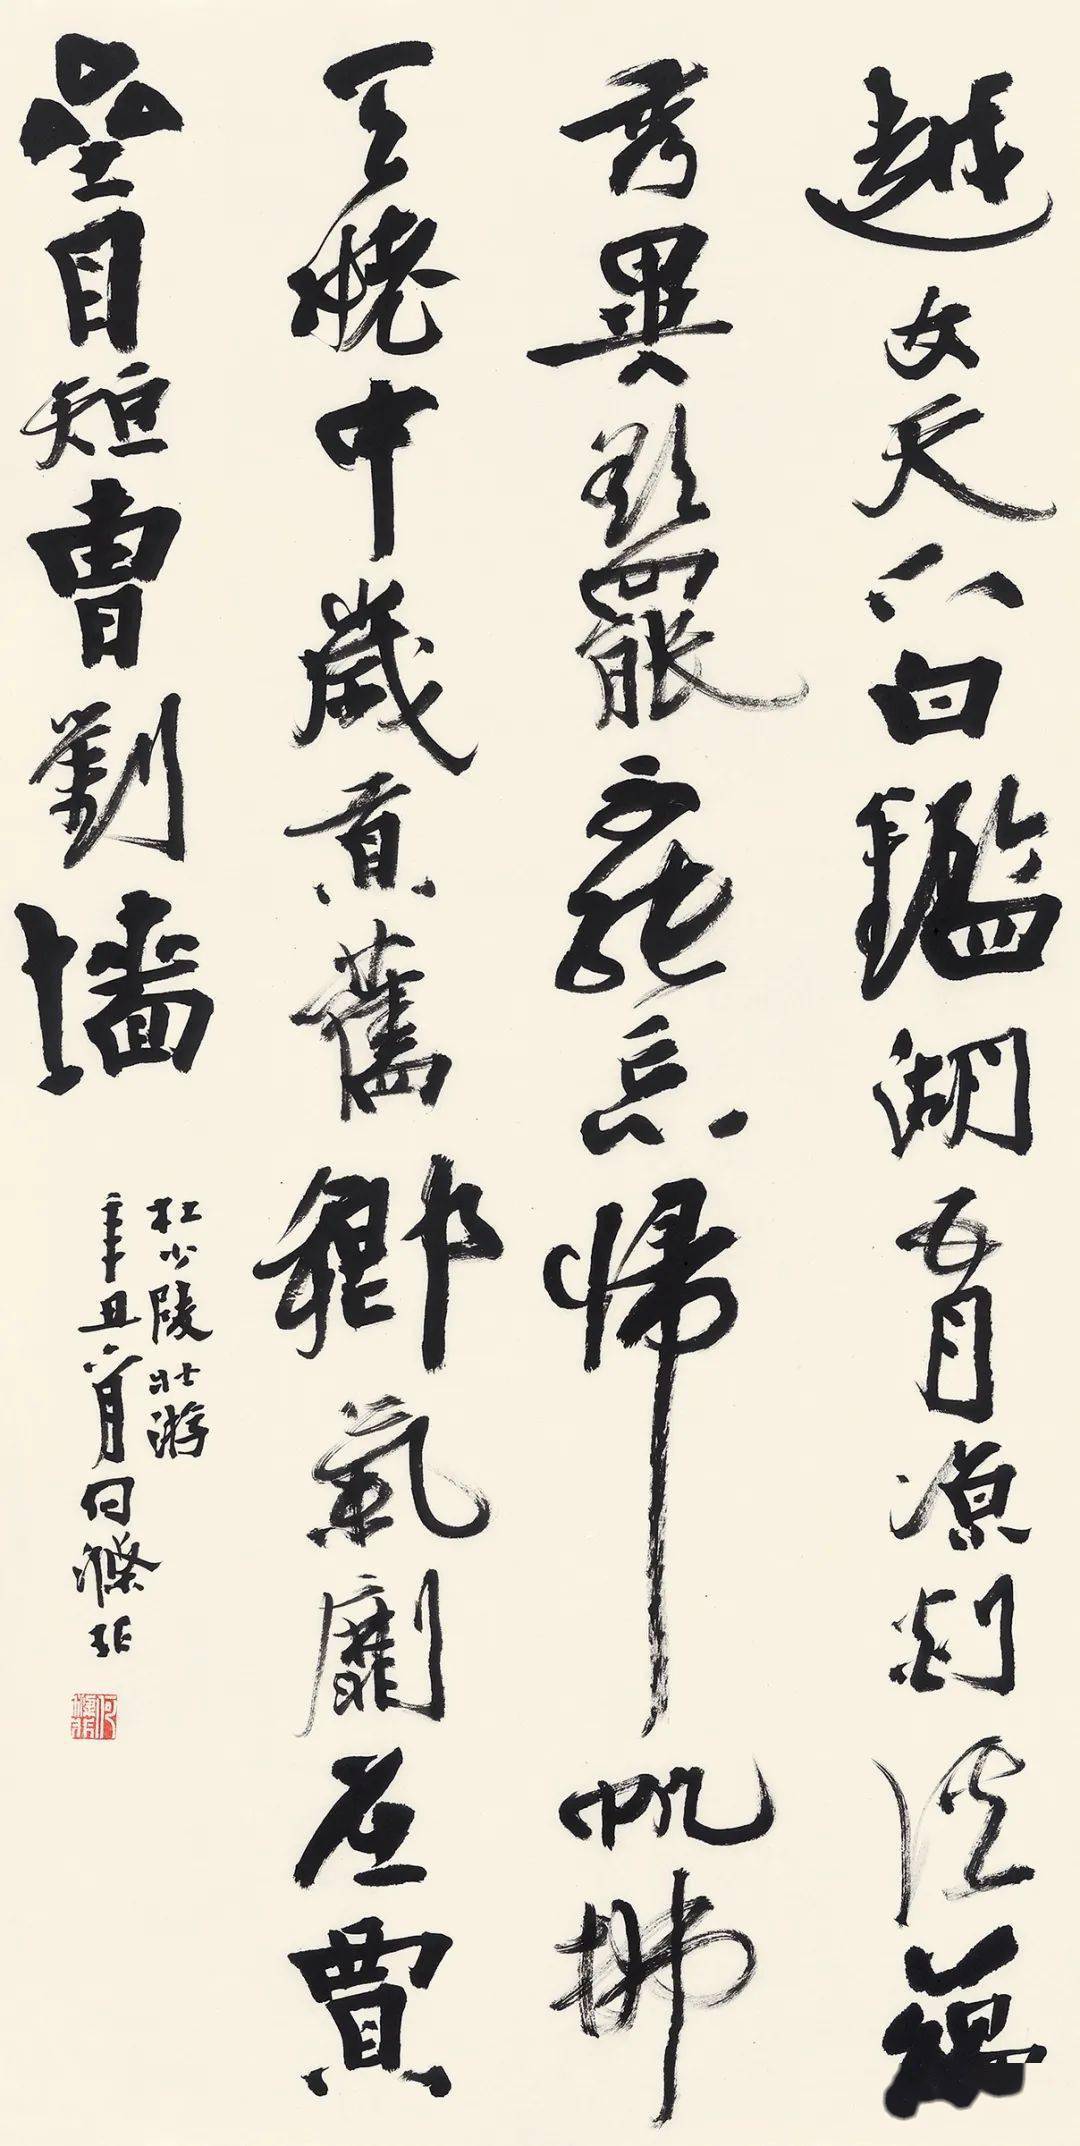 越女天下白鑑湖五月涼剡溪蘊
秀異欲罷不能忘歸帆拂
天姥中歲貢舊鄉氣劘屈賈
垒目短曹劉墻
杜少陵壯游
辛丑六月何滌非
何滌非